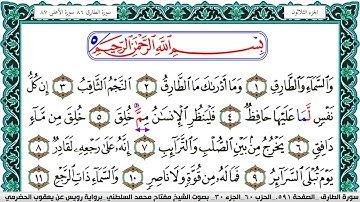 الجزء الثلاثون
سورة الطارق ٨٦ سورة الأعلى ٨٧
بِسْمِ اللَّهِ الرَّحْمَٰنِ الرَّحِيمِ
وَالسَّمَاءِ وَالطَّارِقِ ١ وَمَا أَدْرَىٰكَ مَا الطَّارِقُ ٢ النَّجْمُ الثَّاقِبُ ٣ إِن كُلُّ
نَفْسٍ لَمَا عَلَيْهَا حَافِظٌ ٤ فَلْيَنظُرِ الْإِنسَٰنُ مِمَّ خُلِقَ ٥ خُلِقَ مِن مَّاءٍ
دَافِقٍ ٦ يَخْرُجُ مِن بَيْنِ الصُّلْبِ وَالتَّرَائِبِ ٧ إِنَّهُ عَلَىٰ رَجْعِهِ لَقَادِرٌ ٨
يَوْمَ تُبْلَى السَّرَائِرُ ٩ فَمَا لَهُ مِن قُوَّةٍ وَلَا نَاصِرٍ ١٠ وَالسَّمَاءِ ذَاتِ الرَّجْعِ ١١
سورة الطارق . الصفحة ٥٩١ . الحزب ٦٠ . الجزء ٣٠ . بصوت الشيخ مفتاح محمد السلطني برواية رويس عن يعقوب الحضرمي